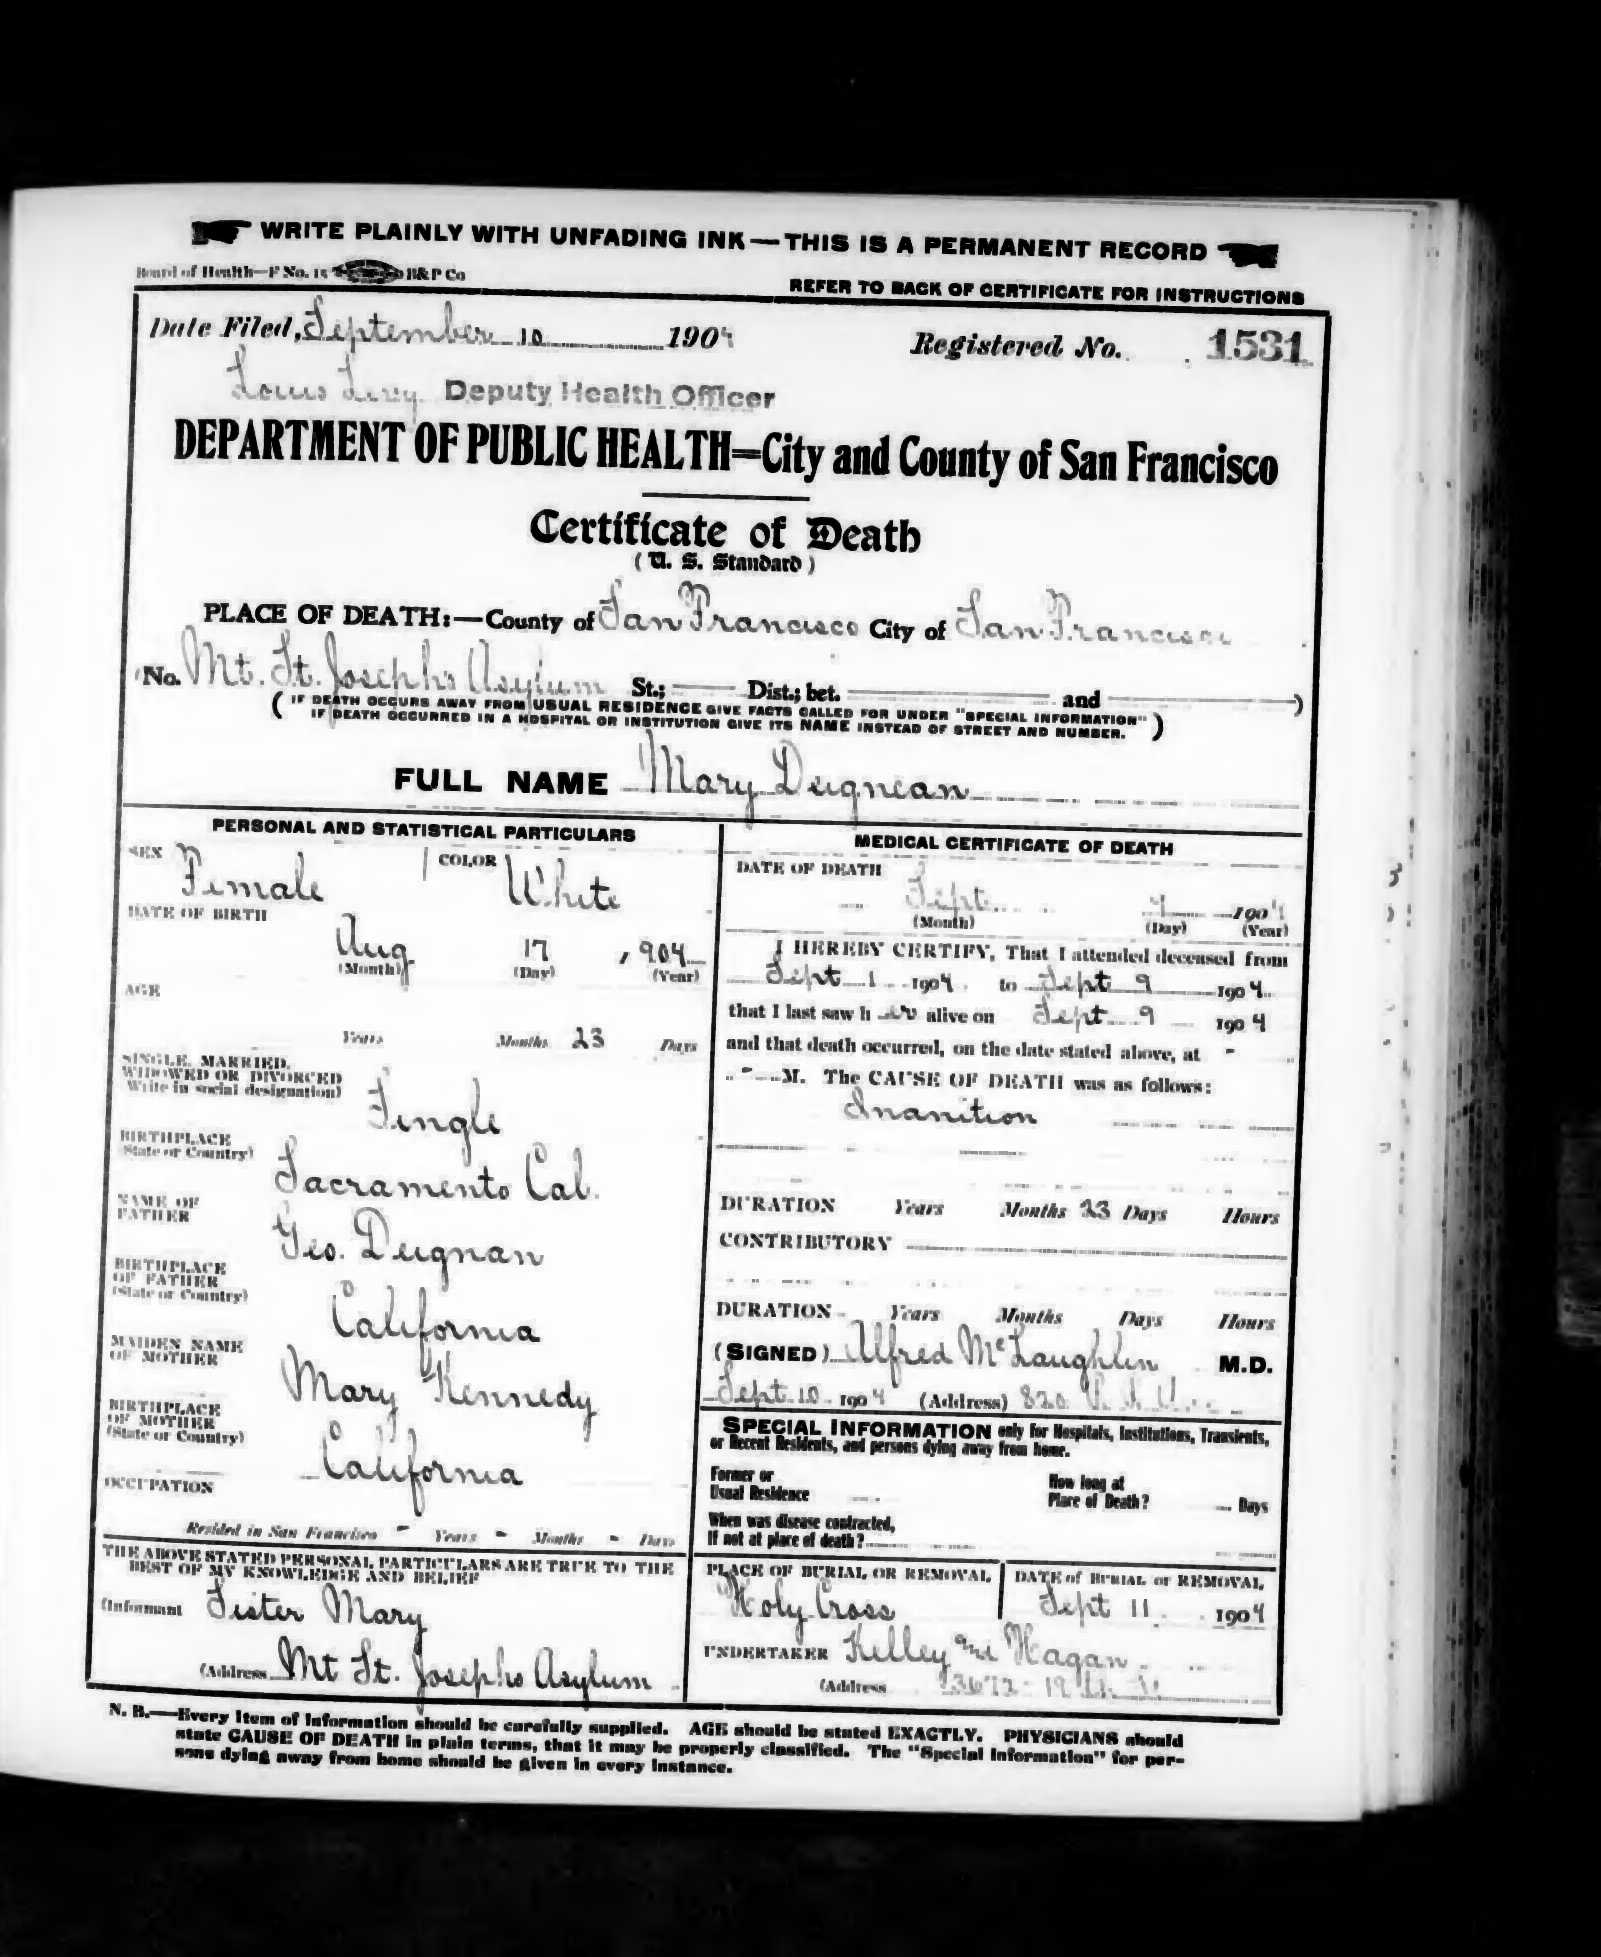 WRITE PLAINLY WITH UNFADING INK—THIS IS A PERMANENT RECORD
Board of Health—F No. 15 B&P Co
REFER TO BACK OF CERTIFICATE FOR INSTRUCTIONS
Date Filed, September 10 1904 Registered No. 1531
Louis Levy Deputy Health Officer
DEPARTMENT OF PUBLIC HEALTH=City and County of San Francisco
Certificate of Death
(U. S. Standard)
PLACE OF DEATH:—County of San Francisco City of San Francisco
(No. Mt. St. Josephs Asylum St.; Dist.; bet. and )
( IF DEATH OCCURS AWAY FROM USUAL RESIDENCE GIVE FACTS CALLED FOR UNDER "SPECIAL INFORMATION"
IF DEATH OCCURRED IN A HOSPITAL OR INSTITUTION GIVE ITS NAME INSTEAD OF STREET AND NUMBER. )
FULL NAME Mary Dugnean
PERSONAL AND STATISTICAL PARTICULARS
SEX Female COLOR White
DATE OF BIRTH
Aug 17 , 904
(Month) (Day) (Year)
AGE
Years Months 23 Days
SINGLE, MARRIED,
WIDOWED OR DIVORCED
Write in social designation)
Single
BIRTHPLACE
State or Country)
Sacramento Cal.
NAME OF
FATHER
Geo. Dugnan
BIRTHPLACE
OF FATHER
(State or Country)
California
MAIDEN NAME
OF MOTHER
Mary Kennedy
BIRTHPLACE
OF MOTHER
(State or Country)
California
OCCUPATION
Resided in San Francisco - Years - Months - Days
THE ABOVE STATED PERSONAL PARTICULARS ARE TRUE TO THE
BEST OF MY KNOWLEDGE AND BELIEF
(Informant Sister Mary
(Address Mt St. Josephs Asylum
MEDICAL CERTIFICATE OF DEATH
DATE OF DEATH
Sept. 1904
(Month) (Day) (Year)
I HEREBY CERTIFY, That I attended deceased from
Sept 1 1904 to Sept 9 1904
that I last saw h er alive on Sept 9 1904
and that death occurred, on the date stated above, at -
- M. The CAUSE OF DEATH was as follows:
Inanition
DURATION Years Months 23 Days Hours
CONTRIBUTORY
DURATION Years Months Days Hours
(SIGNED) Alfred McLaughlin M.D.
Sept 10 1904 (Address) 820
SPECIAL INFORMATION only for Hospitals, Institutions, Transients,
or Recent Residents, and persons dying away from home.
Former or
Usual Residence
How long at
Place of Death? Days
When was disease contracted,
If not at place of death?
PLACE OF BURIAL OR REMOVAL
Holy Cross
DATE of BURIAL or REMOVAL
Sept 11 1904
UNDERTAKER Kelley and Hagan
(Address
N. B.—Every Item of Information should be carefully supplied. AGE should be stated EXACTLY. PHYSICIANS should
state CAUSE OF DEATH in plain terms, that it may be properly classified. The "Special Information" for per-
sons dying away from home should be given in every instance.